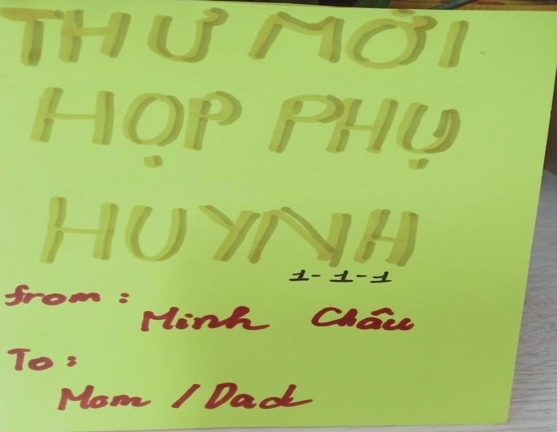 THƯ MỜI
HỌP PHỤ
HUYNH
1-1-1
from:
Minh Châu
To:
Mom / Dad